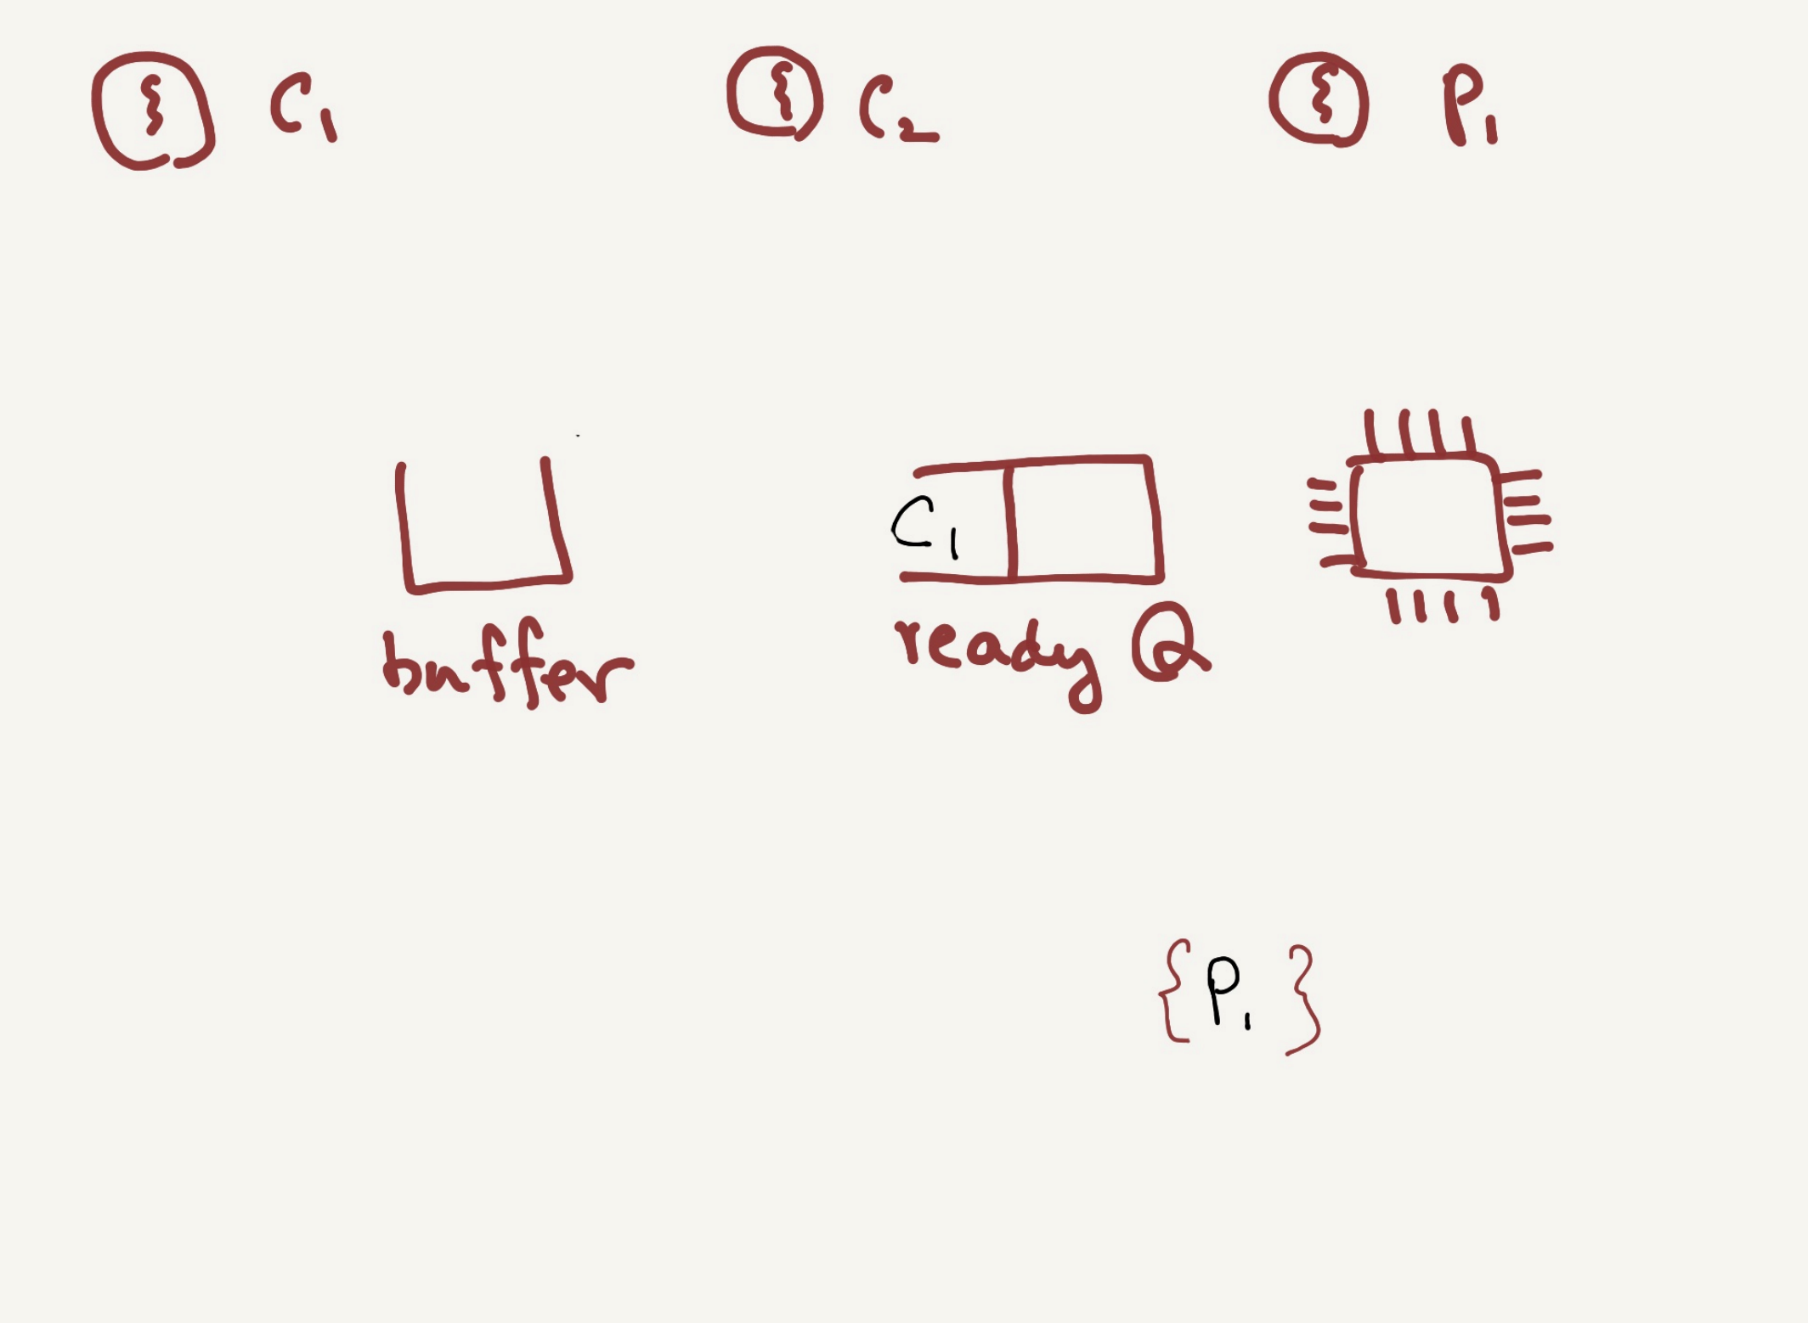 C₁ C₂ P₁
C₁
buffer ready Q
{P₁}